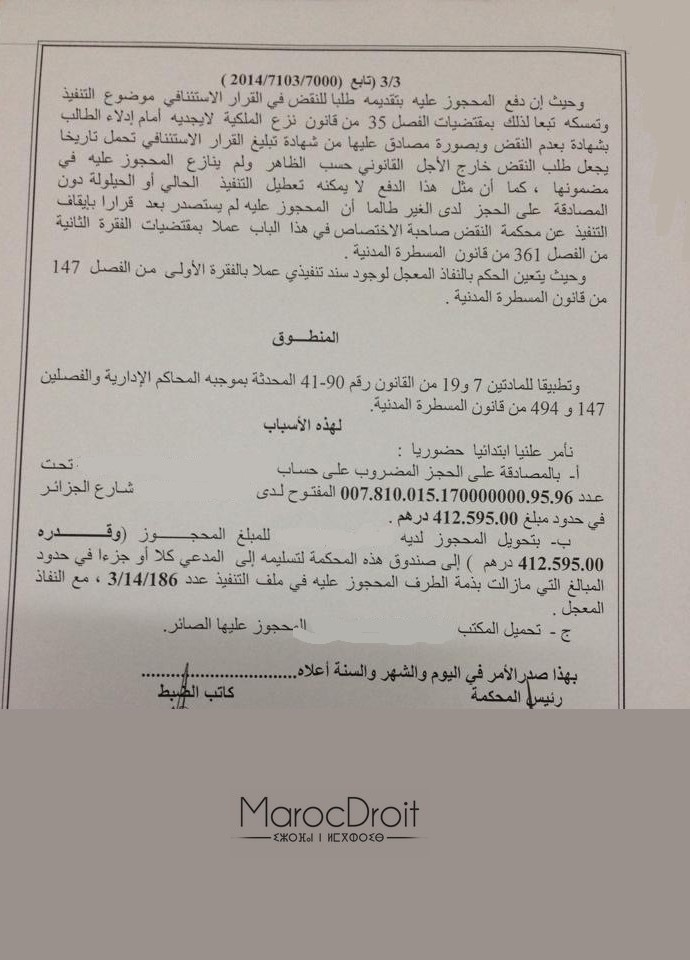 3/3 (تابع (2014/7103/7000 )
وحيث إن دفع المحجوز عليه بتقديمه طلبا للنقض في القرار الاستئنافي موضوع التنفيذ
وتمسكه تبعا لذلك بمقتضيات الفصل 35 من قانون نزع الملكية لايجديه أمام إدلاء الطالب
بشهادة بعدم النقض وبصورة مصادق عليها من شهادة تبليغ القرار الاستئنافي تحمل تاريخا
يجعل طلب النقض خارج الأجل القانوني حسب الظاهر ولم ينازع المحجوز عليه في
مضمونها ، كما أن مثل هذا الدفع لا يمكنه تعطيل التنفيذ الحالي أو الحيلولة دون
المصادقة على الحجز لدى الغير طالما أن المحجوز عليه لم يستصدر بعد قرارا بإيقاف
التنفيذ عن محكمة النقض صاحبة الاختصاص في هذا الباب عملا بمقتضيات الفقرة الثانية
من الفصل 361 من قانون المسطرة المدنية .
وحيث يتعين الحكم بالنفاذ المعجل لوجود سند تنفيذي عملا بالفقرة الأولى من الفصل 147
من قانون المسطرة المدنية .
المنطـــوق
وتطبيقا للمادتين 7 و19 من القانون رقم 90-41 المحدثة بموجبه المحاكم الإدارية والفصلين
147 و 494 من قانون المسطرة المدنية.
لهذه الأسباب
نأمر علنيا ابتدائيا حضوريا :
أ- بالمصادقة على الحجز المضروب على حساب تحت
عدد 007.810.015.170000000.95.96 المفتوح لدى شارع الجزائر
في حدود مبلغ 412.595.00 درهم .
ب- بتحويل المحجوز لديه للمبلغ المحجـــوز (وقـــدره
412.595.00 درهم ) إلى صندوق هذه المحكمة لتسليمه إلى المدعي كلا أو جزءا في حدود
المبالغ التي مازالت بذمة الطرف المحجوز عليه في ملف التنفيذ عدد 3/14/186 ، مع النفاذ
المعجل .
ج - تحميل المكتب المحجوز عليها الصائر.
بهذا صدرالأمر في اليوم والشهر والسنة أعلاه...............................
رئيس المحكمة كاتب الضبط
MarocDroit